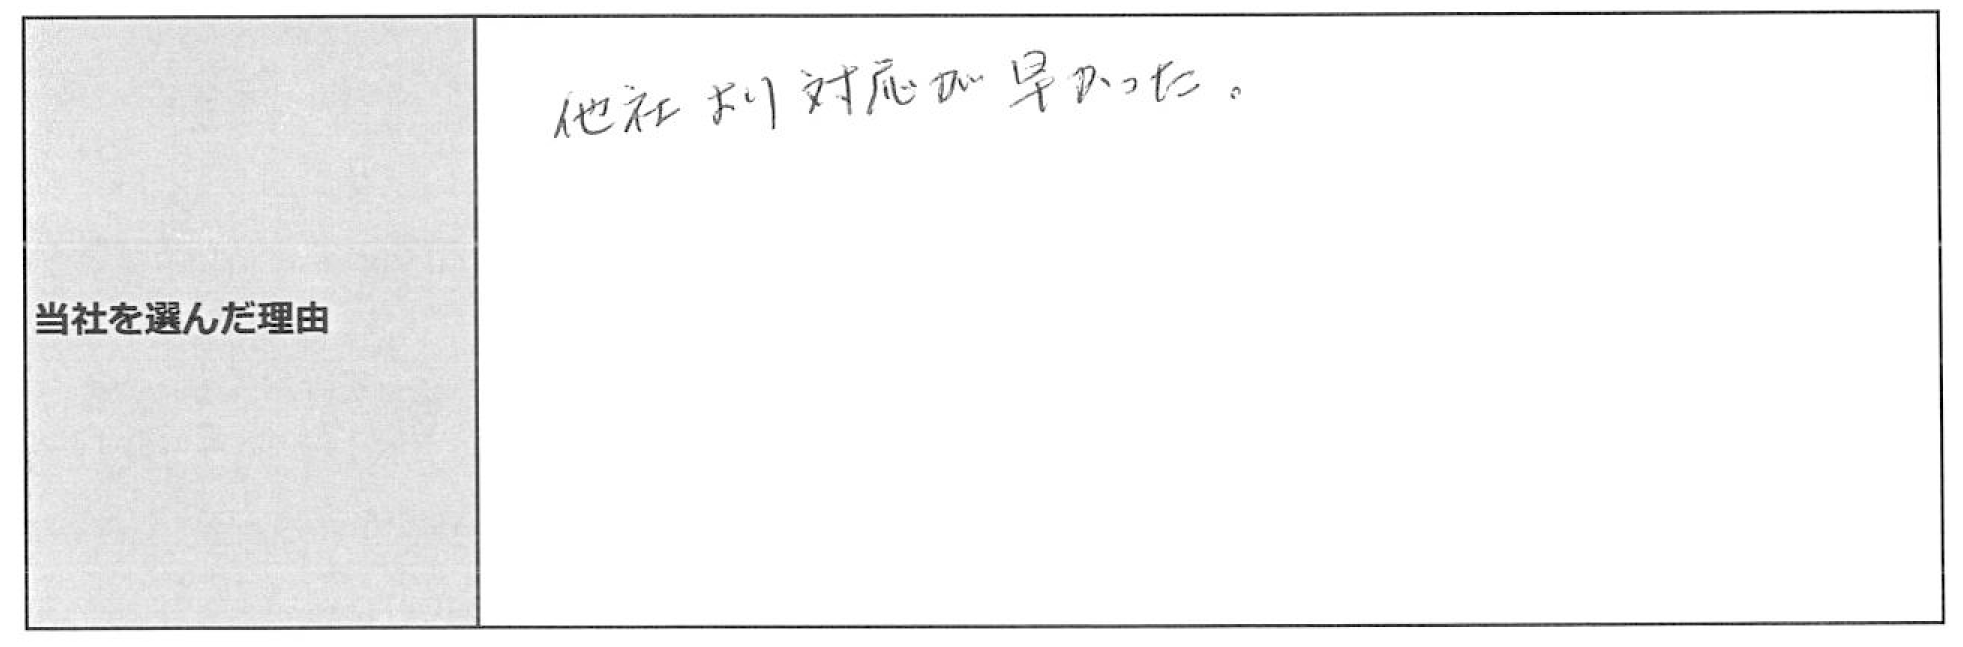 当社を選んだ理由
他社より対応が早かった。